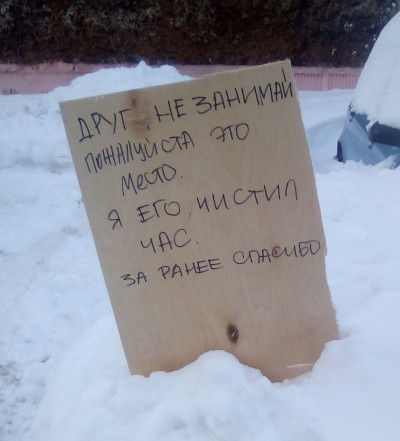 ДРУГ, НЕ ЗАНИМАЙ
ПОЖАЛУЙСТА ЭТО
МЕСТО.
Я ЕГО ЧИСТИЛ
ЧАС.
ЗА РАНЕЕ СПАСИБО